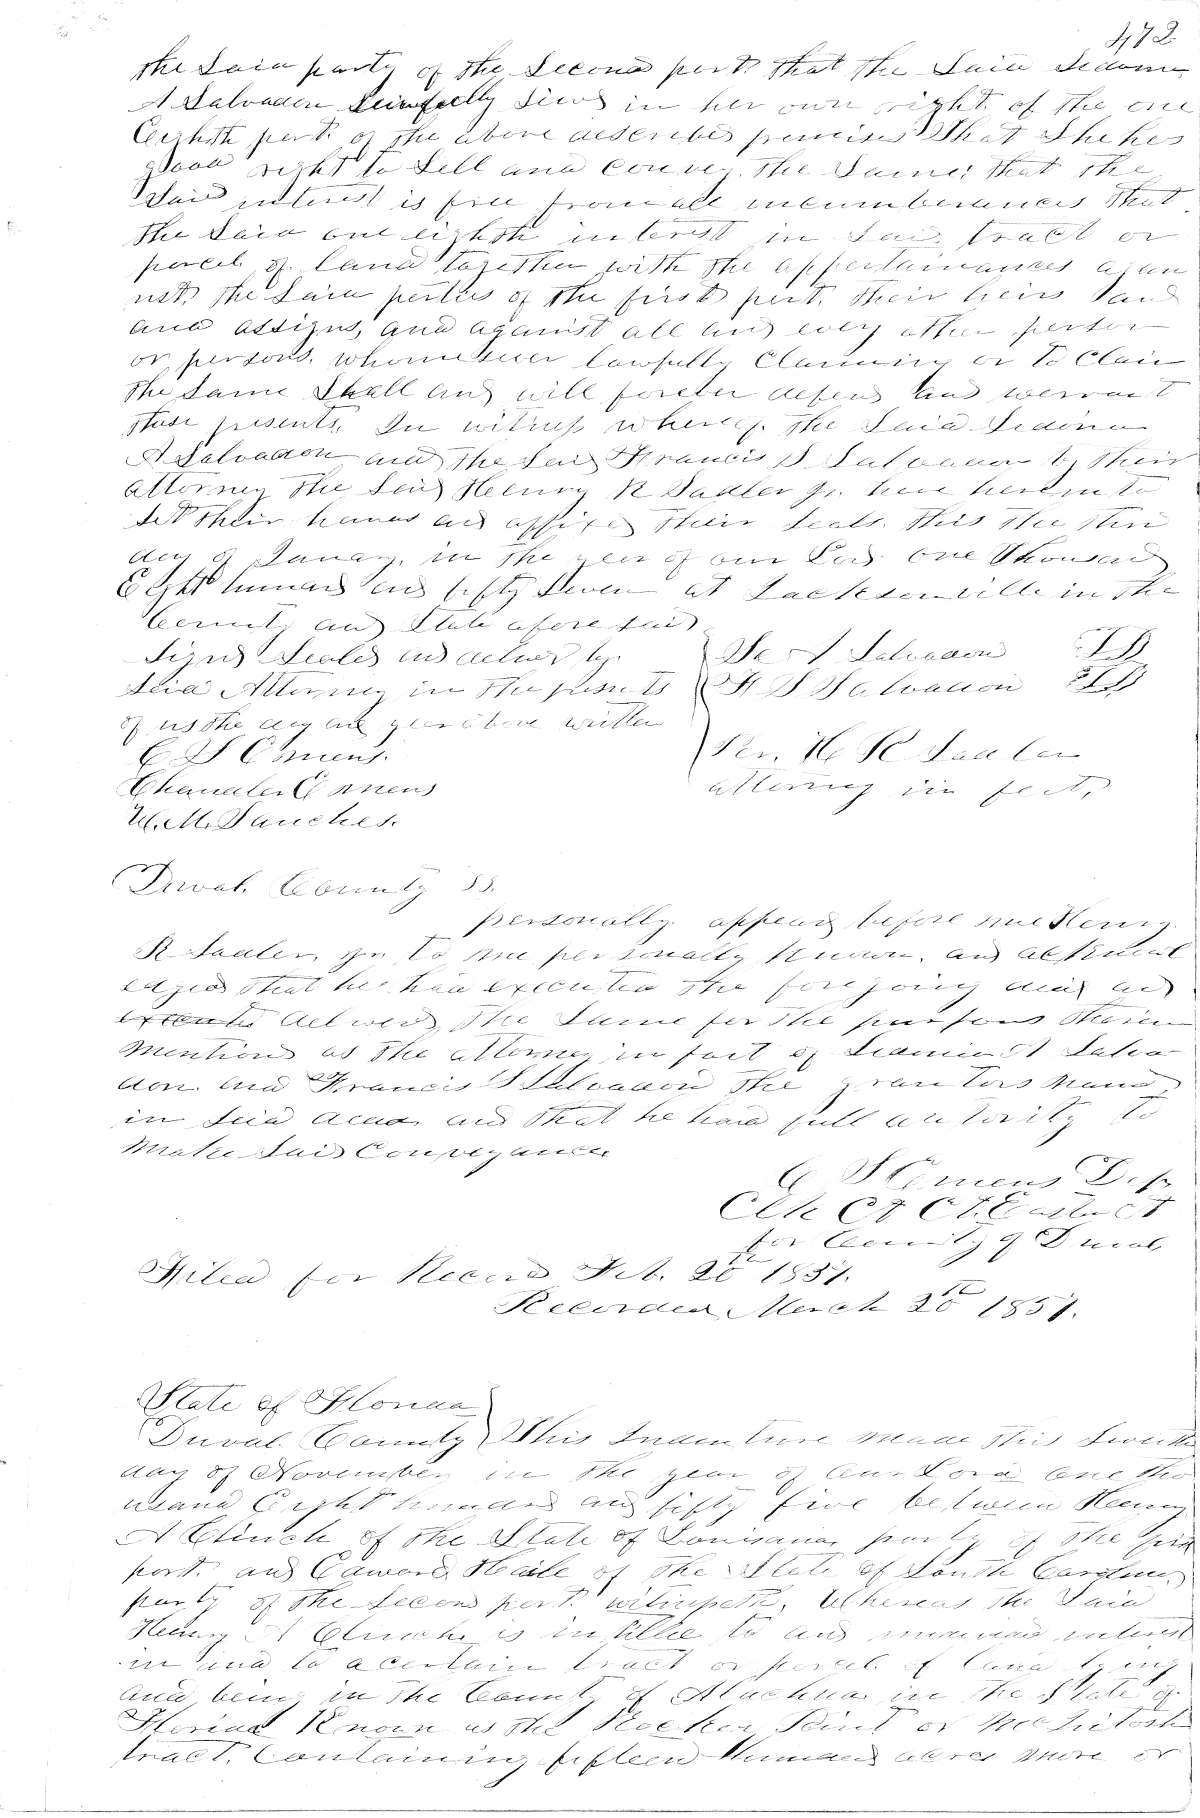 472
the said party of the second part that the said Sidonia
A Salvadon lawfully siezd in her own right of the one
Eighth part of the above described premises That She hes
good right to Sell and convey the Same; that the
Said interest is free from all incumberances that
the said one eighth interest in said tract or
parcel of land together with the appertainances again
nst the said parties of the first part their heirs and
and assigns, and against all and every other person
or persons whomesoever lawfully Claiming or to Claim
the same Shall and will forever defend and warrant
these presents. In witness whereof the Said Sidonia
A Salvadon and the said Francis S Salvadon by their
attorney the said Henry R Sadler Jr. have hereunto
set their hands and affixed their seals this the
day of January in the year of our Lord one thousand
Eight hundred and fifty Seven at Jacksonville in the
County and State aforesaid
Signd Sealed and deliverd by
said Attorney in the presents
of us the day and year above written
A Salvadon
F S Salvadon
Per. H R Sadler
attorney in fact,
C S Emens.
Chandler S Emens
W. M. Sanches.
Duval County SS.
personally appeard before me Henry
R Sadler, Jr. to me personally known, and acknowl
edged that he had executed the foregoing deed and
executed deliverd the same for the purposes therein
mentiond as the attorney in fact of Sidonia A Salva
don and Francis S Salvadon the grantors named
in said deed and that he had full autority to
make said Conveyance
C S Emens Dep
Clk Ct Ct
for County of Duval
Filed for Record Feb. 20th 1857.
Recorded March 20th 1857.
State of Florida
Duval County This Indenture made this twelth
day of November in the year of our Lord one tho
usand Eight hundred and fifty five between Henry
A Clinch of the State of Louisiana party of the first
part. and Edward Haile of the State of South Carolina
party of the second part. witnesseth, Whereas the Said
Henry A Clinch is intitle to and undivided interest
in and to a certain tract or parcel of land lying
and being in the County of Alachua in the State of
Florida Known as the Rocky Point or McIntosh
tract. Containing fifteen Hundred acres more or